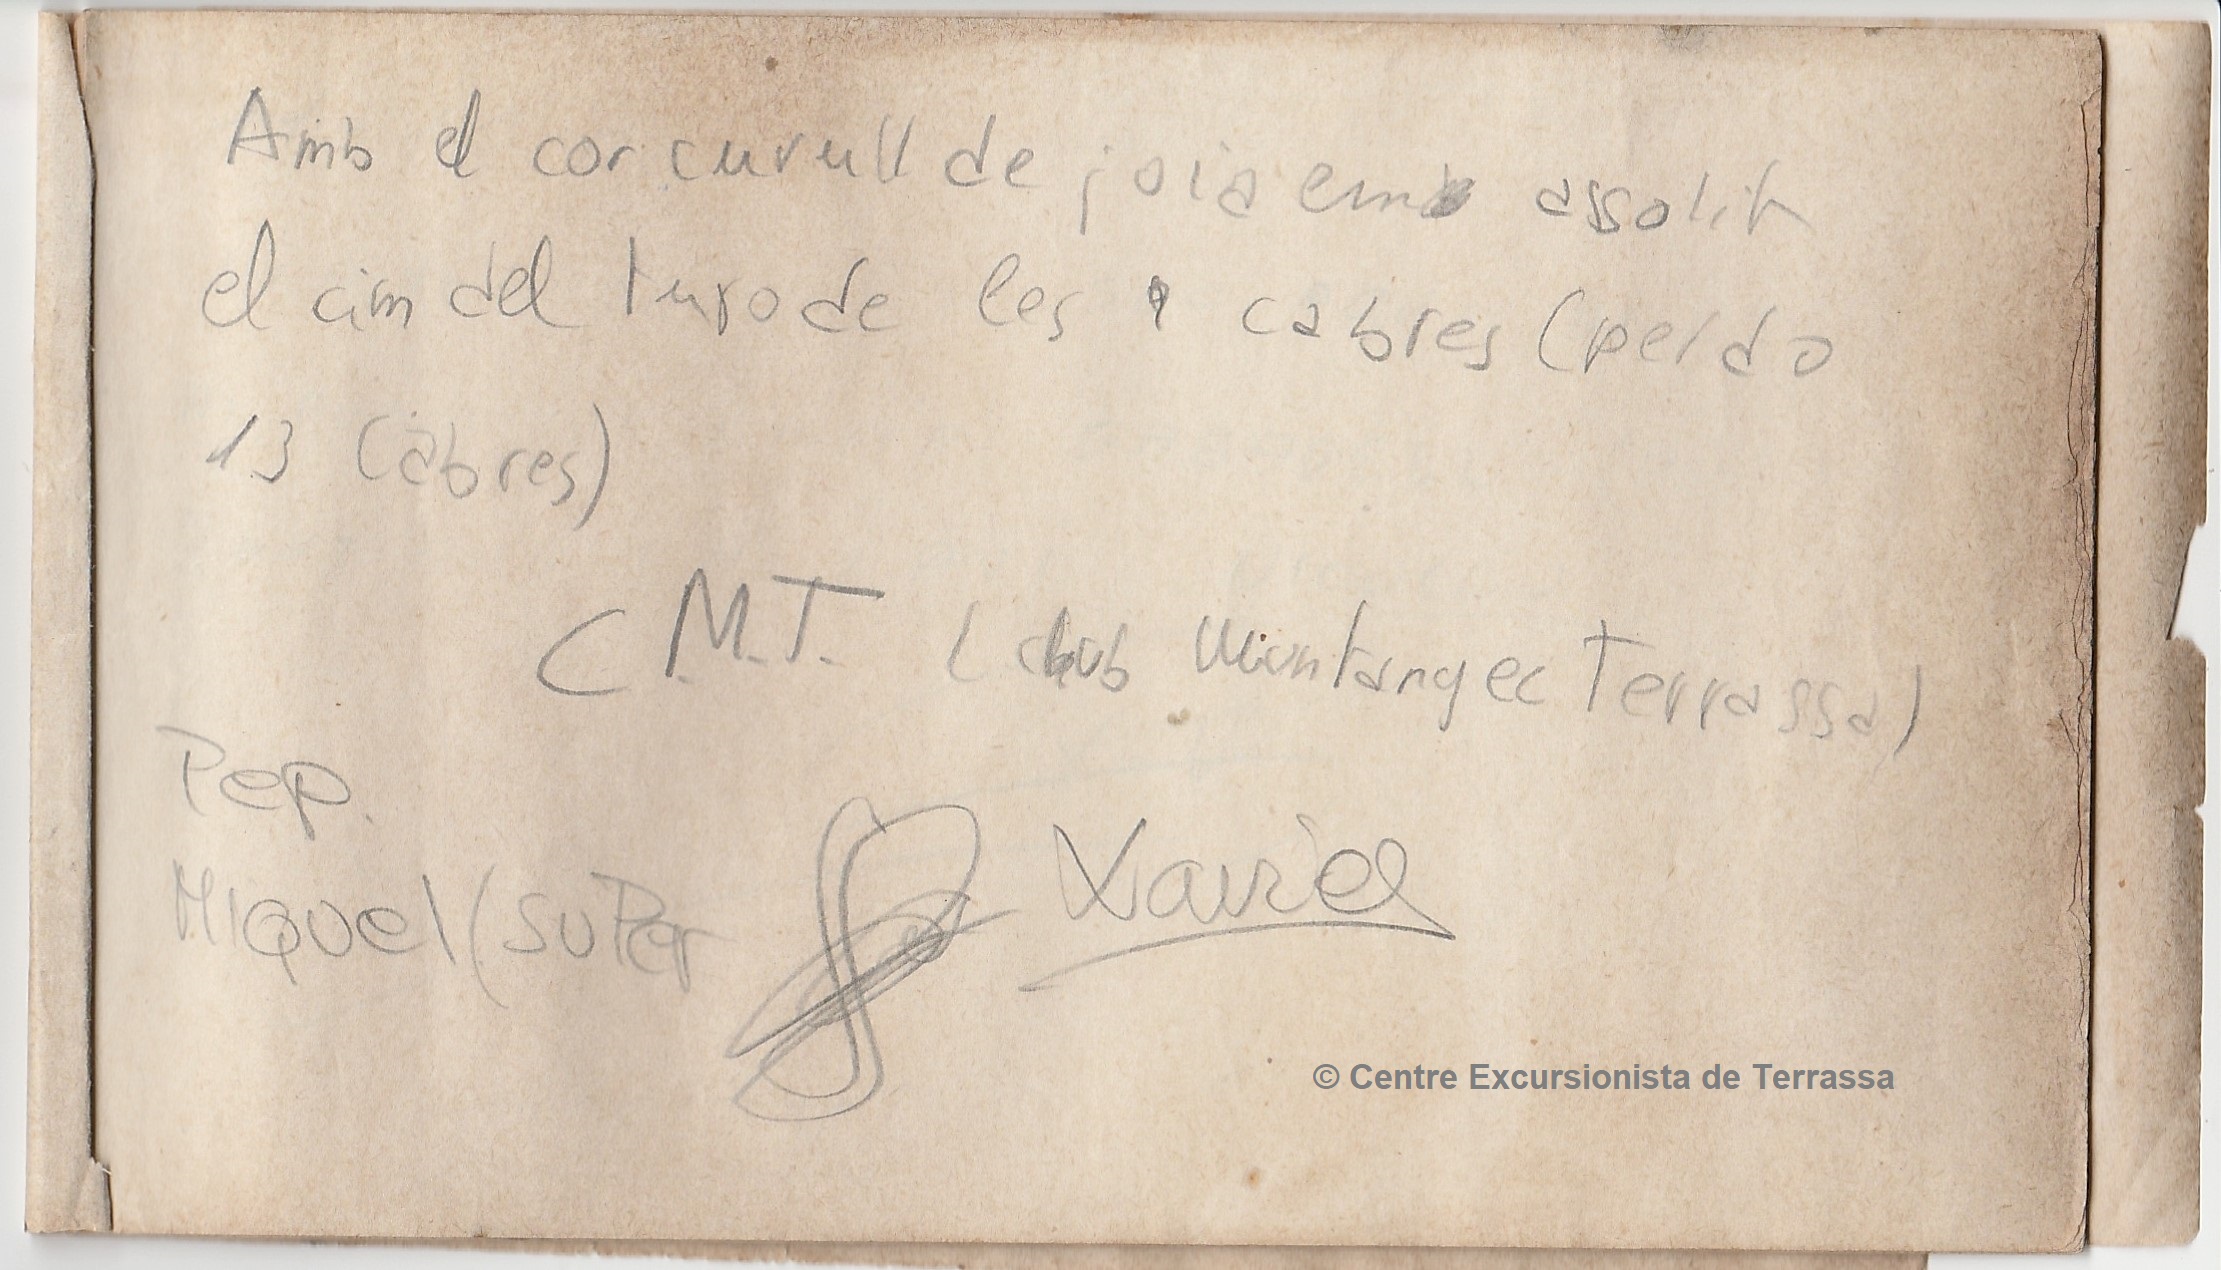 Amb el cor curull de joia em assolit
el cim del turo de les 9 cabres (perdo
13 Cabres)
C.M.T. (club Muntanyec Terrassa)
Pep.
Miquel (SuPer
Xavier
© Centre Excursionista de Terrassa